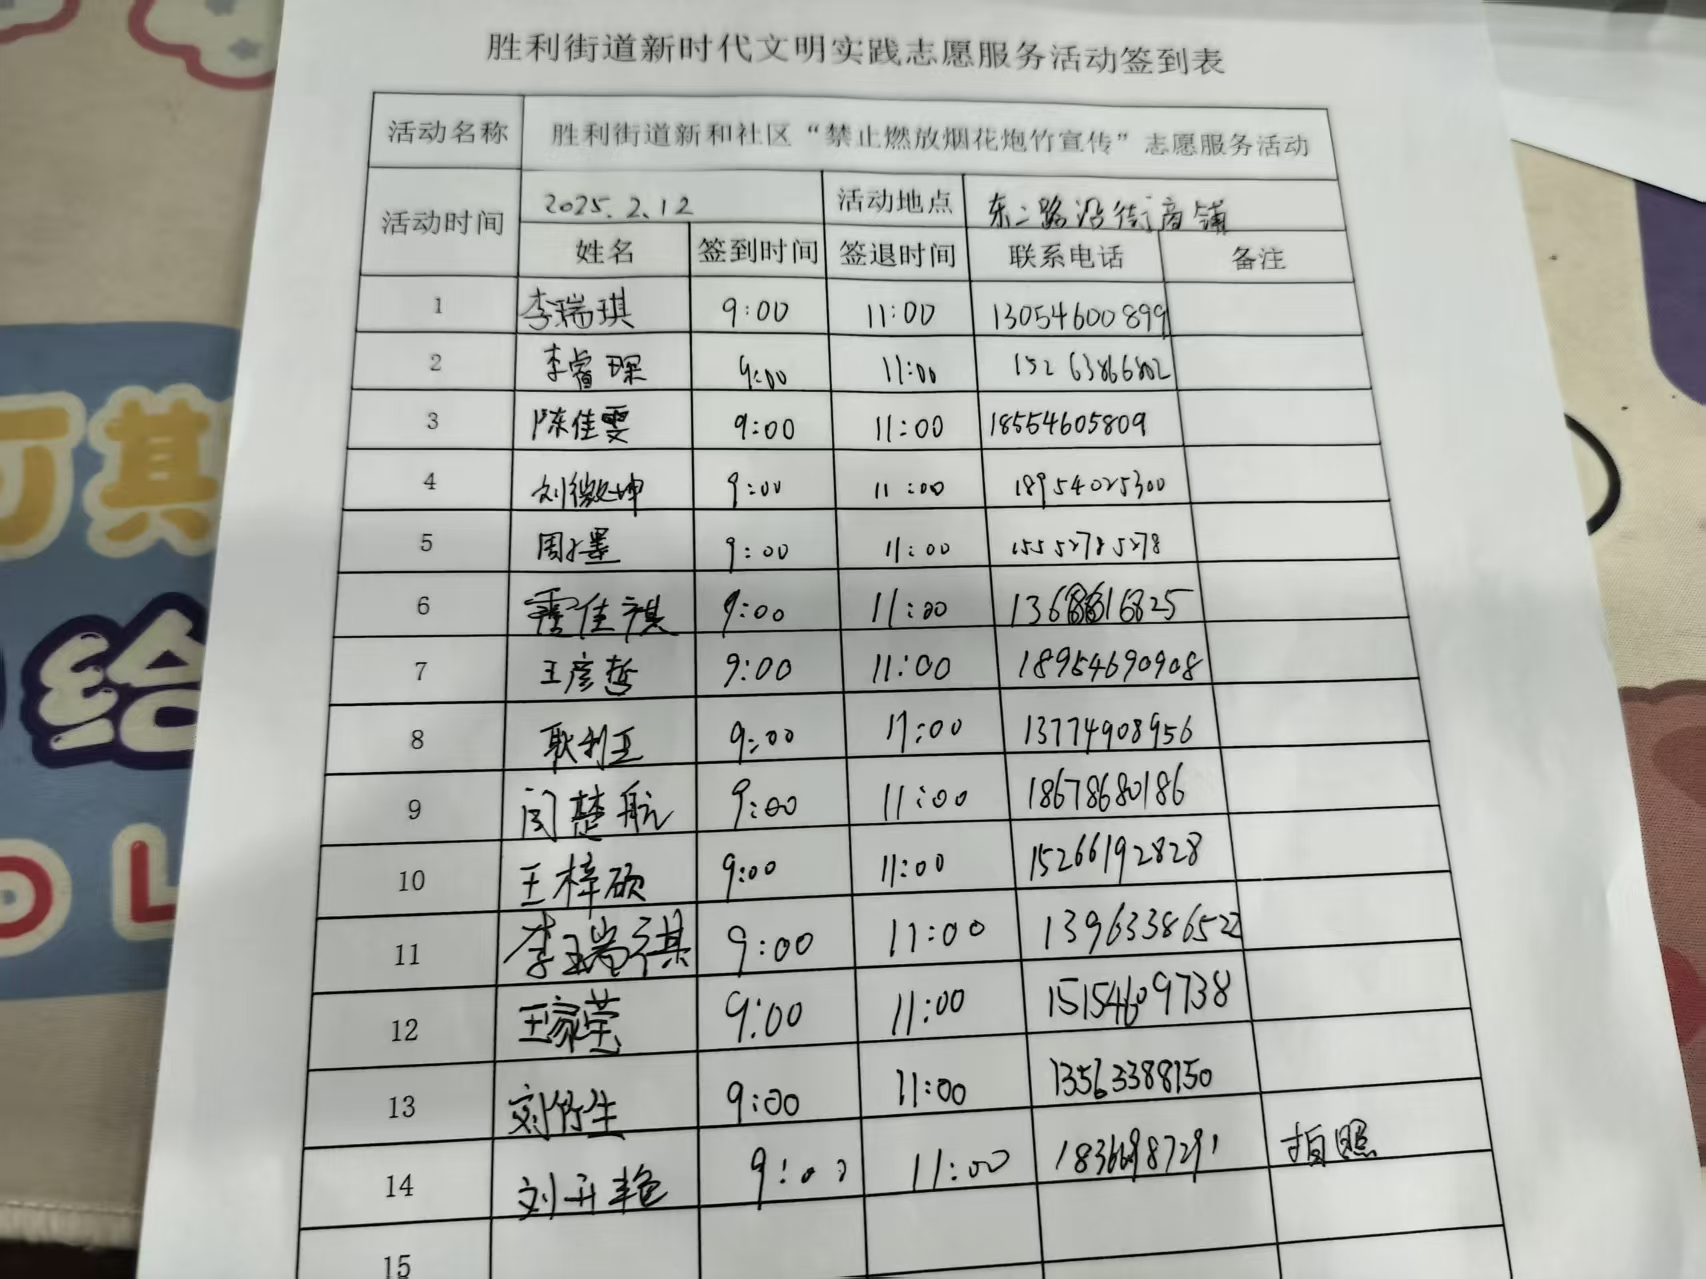 胜利街道新时代文明实践志愿服务活动签到表
活动名称 胜利街道新和社区“禁止燃放烟花炮竹宣传”志愿服务活动
活动时间 2025.2.12 活动地点 东二路沿街商铺
姓名 签到时间 签退时间 联系电话 备注
1 李瑞琪 9:00 11:00 13054600899
2 李睿琛 9:00 11:00 15263866802
3 陈佳雯 9:00 11:00 18554605809
4 刘微坤 9:00 11:00 18954025300
5 周墨 9:00 11:00 15552785278
6 霍佳祺 9:00 11:00
7 王彦哲 9:00 11:00 18954690908
8 耿利王 9:00 11:00 13774908956
9 闫楚航 9:00 11:00 18678680186
10 王梓硕 9:00 11:00 15266192828
11 李瑞祺 9:00 11:00 13963386522
12 王家莹 9:00 11:00 15154609738
13 刘竹生 9:00 11:00 13563388150
14 刘开艳 9:00 11:00 18366987291 拍照
15
其
给